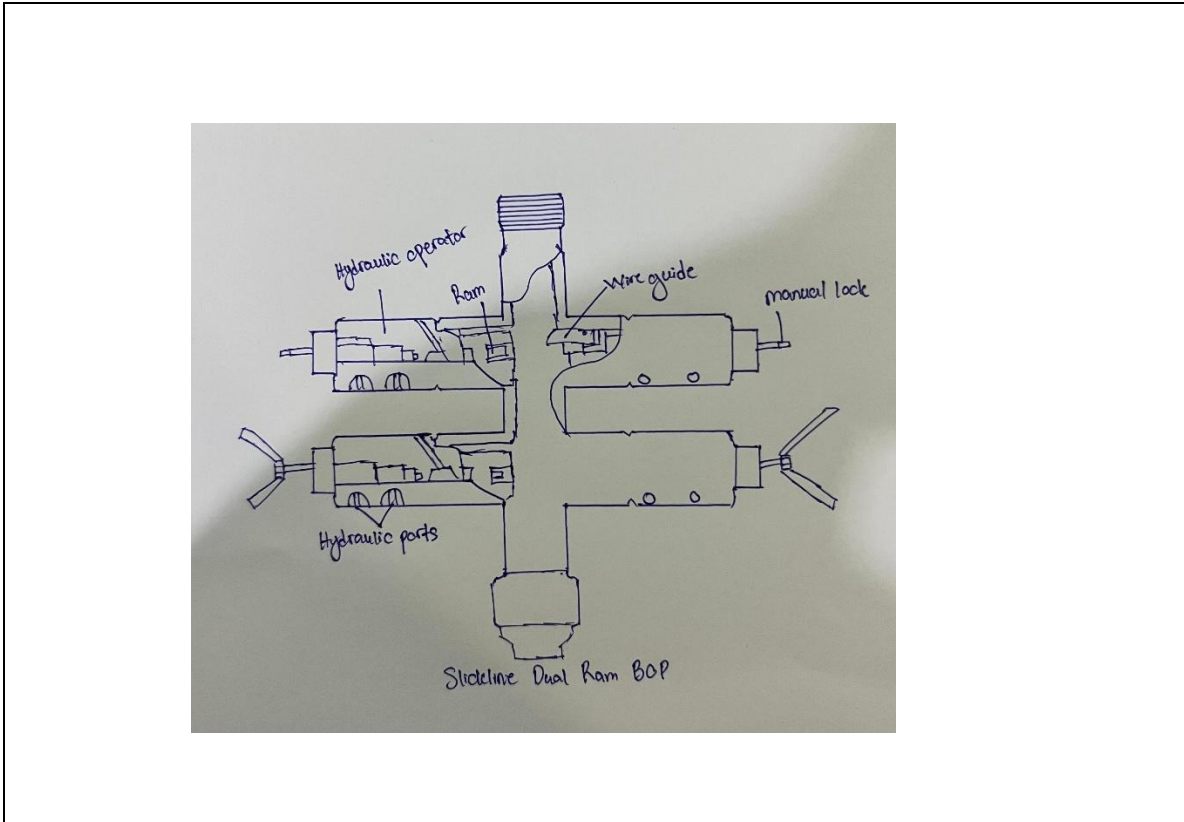 Hydraulic operator
Ram
Wire guide
manual lock
Hydraulic ports
Slickline Dual Ram BOP